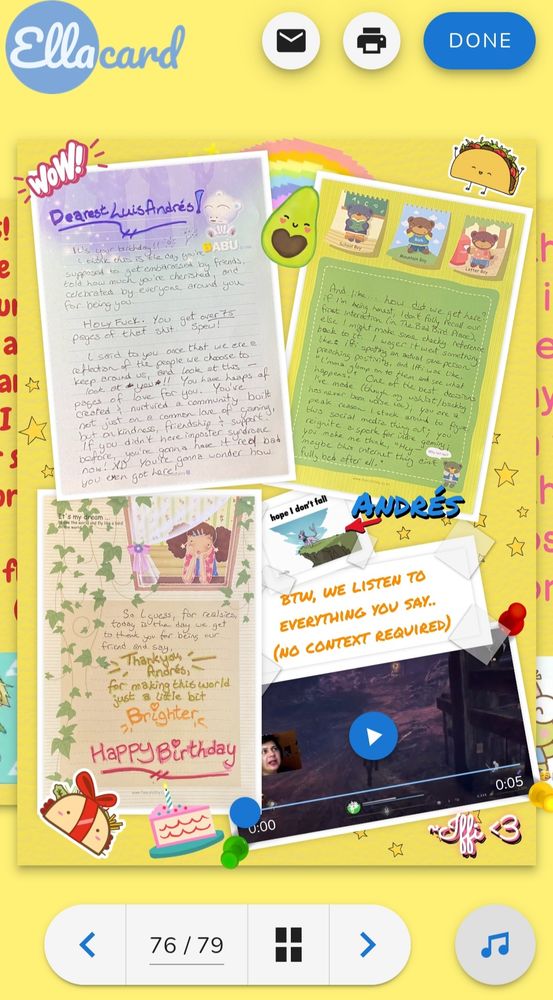 Ellacard
DONE
WOW!
Dearest Luis Andrés!
DABU
It's your birthday!!
I think this is the day you're
supposed to get embarrassed by friends,
told how much you're cherished, and
celebrated by everyone around you
for being you.
Holy Fuck. You get over 75
pages of that shit! Spew!
I said to you once that we are a
reflection of the people we choose to
keep around us, and look at this —
look at *you*!! You have heaps of
pages of love for you. You've
created & nurtured a community built
not just on a common love of gaming,
but on kindness, friendship & support.
If you didn't have imposter syndrome
before, you're gonna have it real bad
now! XD You're gonna wonder how
you even got here!
School Boy
Mountain Boy
Letter Boy
And like... how did we get here?
if I'm being honest, I don't fully recall our
first interaction (in The Bad Bird Place).
else I might make some cheeky reference
back to it. I'd wager it was something
like Iffi spotting an actual sane person
preaching positivity, and Iffi was like,
I'mma glomp on to them and see what
happens! One of the best decisions
I've made though my whilst/luckily
has never been worse
peace. reason I stuck around to
this social media thing out; you
reignite a spark for video gaming
you make me think, "hey —
maybe this internet they ain't
fully bad after all".
It's my dream...
So I guess, for realsies,
today is the day we get
to thank you for being our
friend and say,
Thank you,
Andrés,
for making this world
just a little bit
Brighter
Happy Birthday
hope I don't fall
ANDRÉS
BTW, WE LISTEN TO
EVERYTHING YOU SAY..
(NO CONTEXT REQUIRED)
0:00
0:05
~Iffi <3
76 / 79